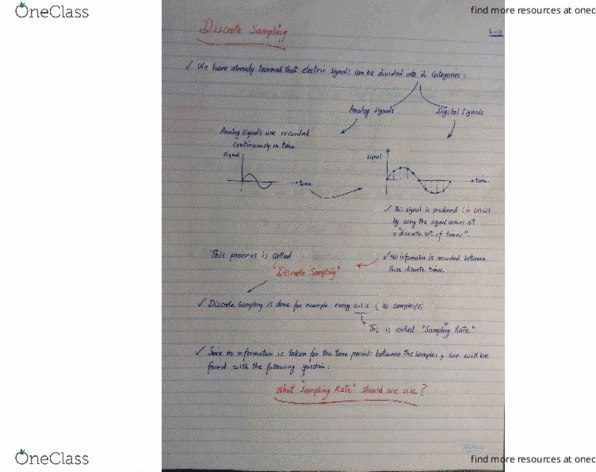 OneClass
find more resources at onec
Discrete Sampling
L-12
✓ We have already learned that electric signals can be divided into 2 categories:
Analog Signals
Digital Signals
Analog signals are recorded
continuously in time
signal
time
signal
time
✓ This signal is produced
by using the signal values at
a "discrete set of times".
This process is called
"Discrete Sampling"
✓ No information is recorded between
these discrete times.
✓ Discrete Sampling is done for example every 0.1 s (10 samples/s)
This is called "Sampling Rate"
✓ Since no information is taken for the time periods between the samples, we will be
faced with the following question:
What "Sampling Rate" should we use?
OneClass
find more resources at onec